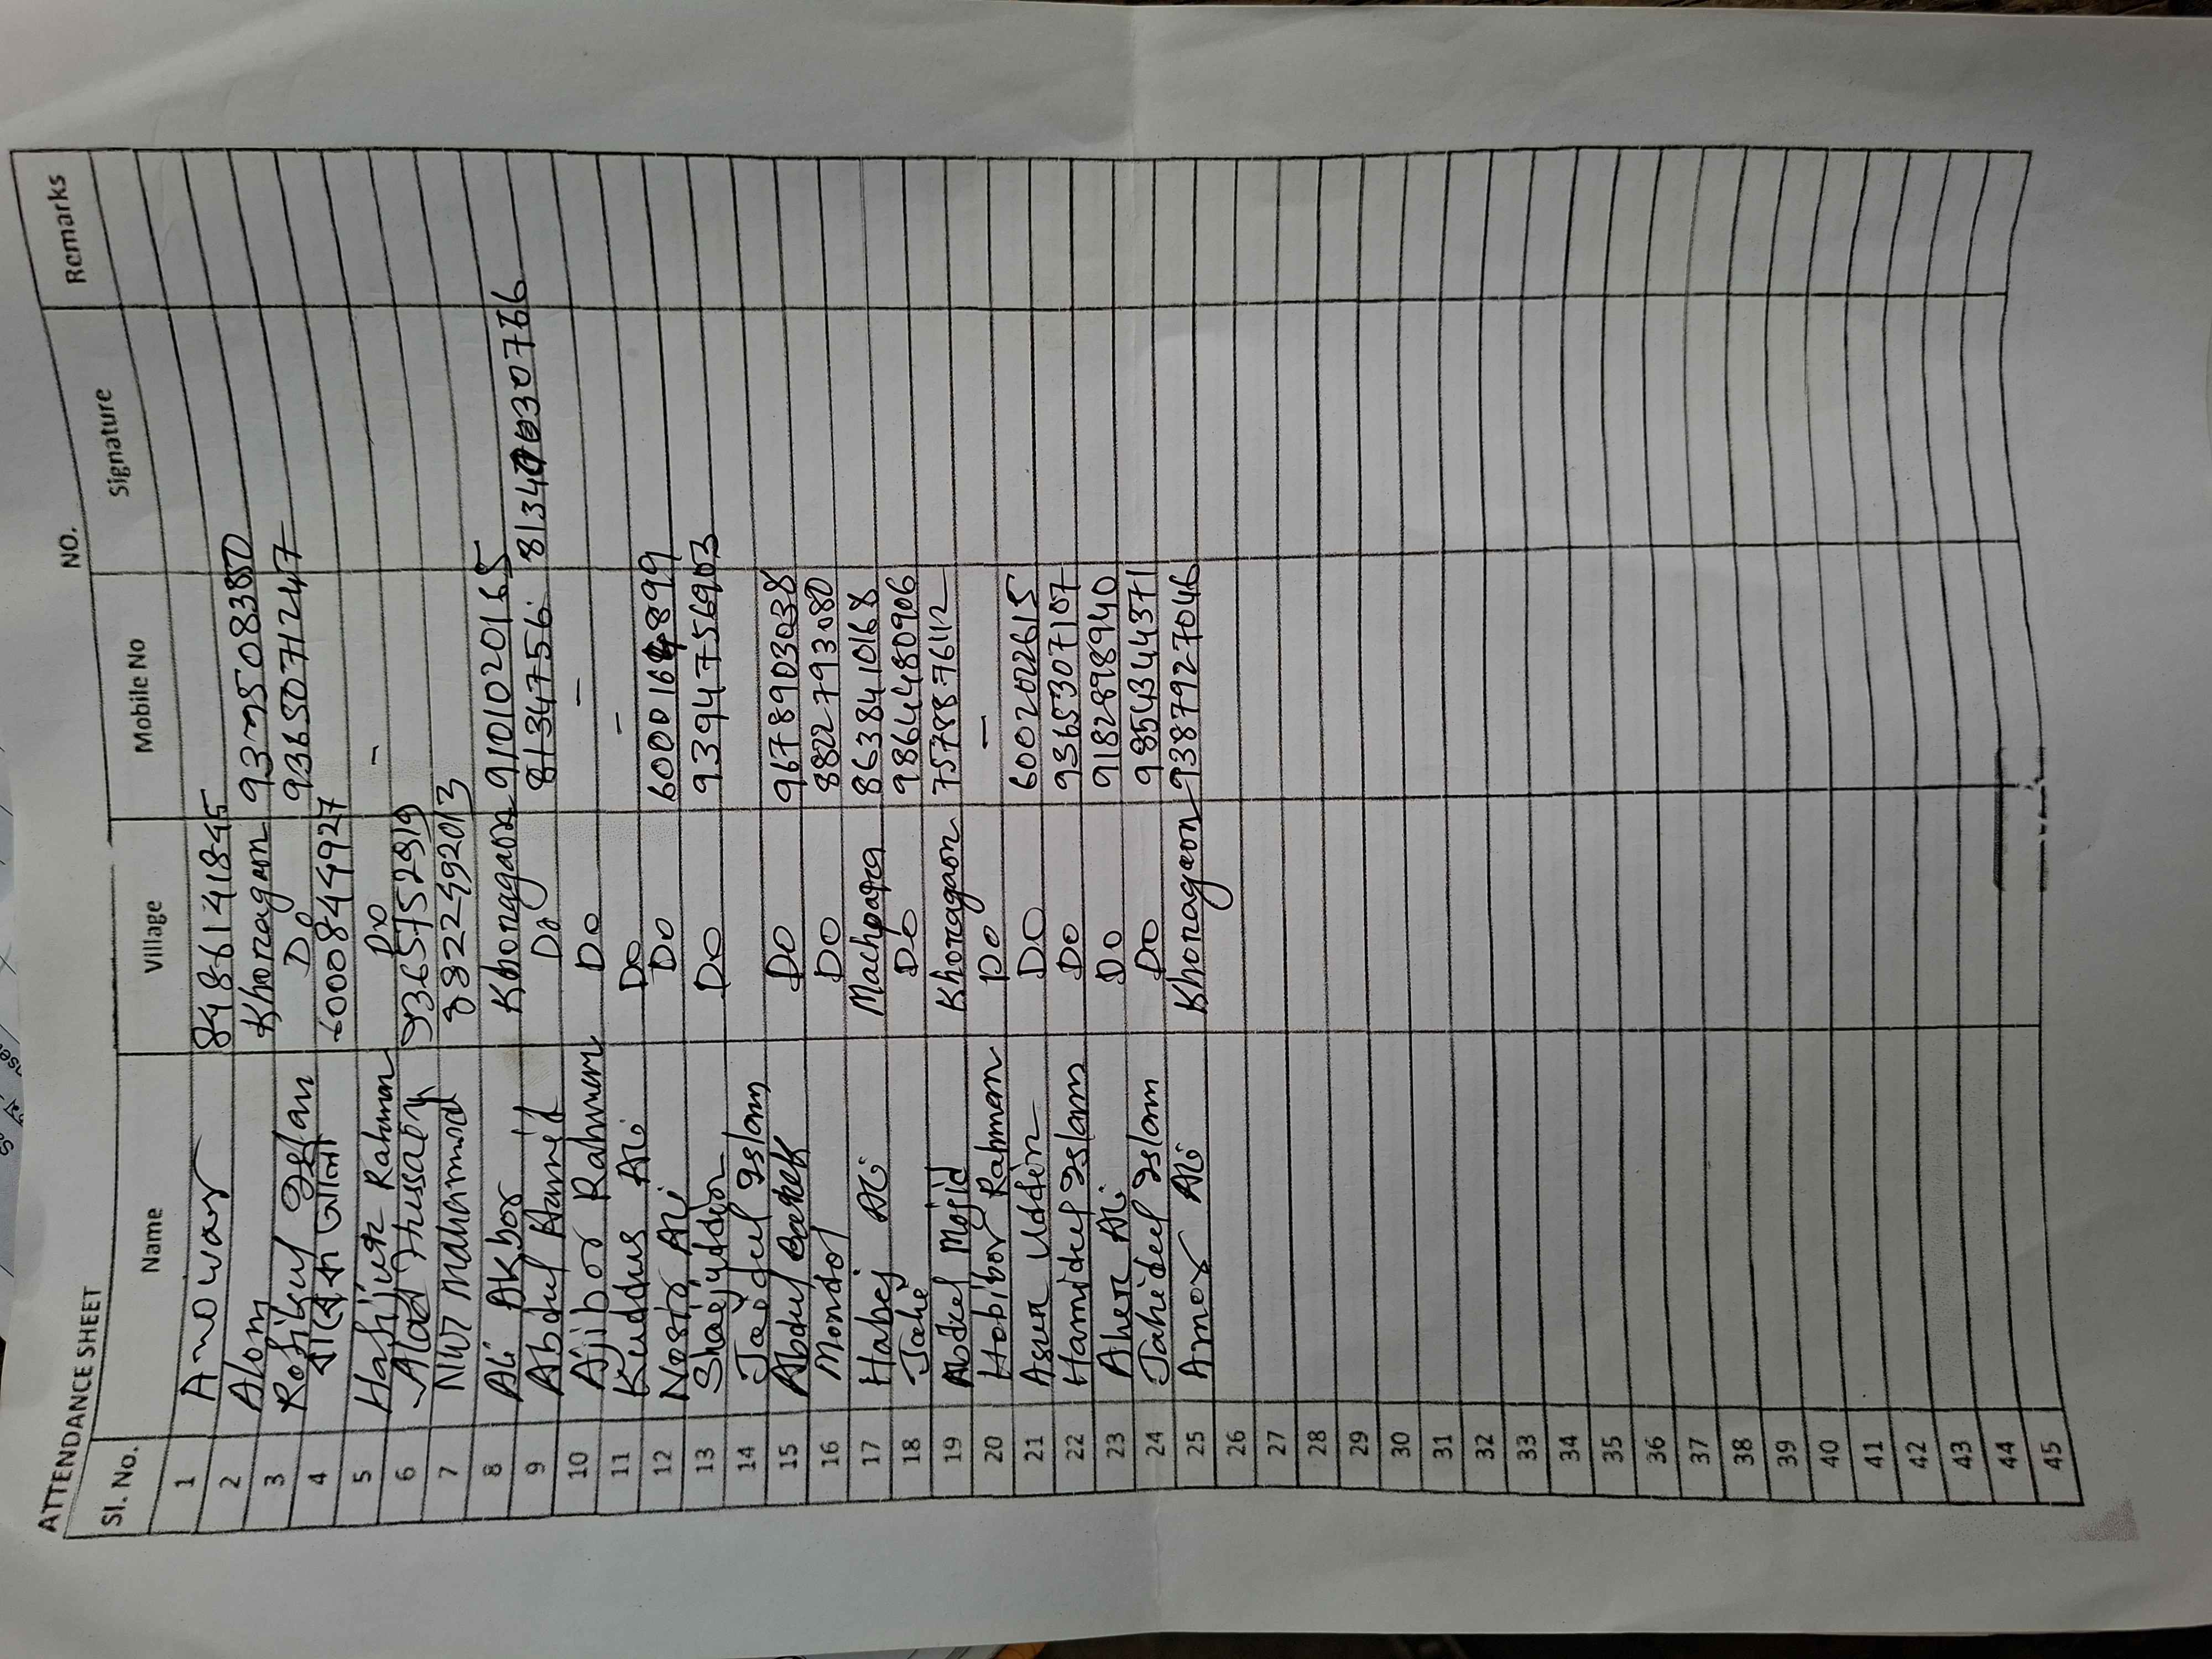 ATTENDANCE SHEET NO.
Sl. No. Name Village Mobile No Signature Remarks
1 Anowar 8486141845
2 Alom Khonagaon
3 Rofikul Islam Do 9365071247
4 6000844927
5 Hasijur Rahman Do -
6 Hussain 9365752919
7 Nur Mahammad 8822492013
8 Ali Akbor Khonagaon 9101020165
9 Abdul Hamid Do 8134756
10 Ajibor Rahman Do -
11 Kuddus Ali Do -
12 Nosir Ali Do
13 Do 9394756903
14 Islam
15 Abdul Do 9678903038
16 Mondol Do 8822793080
17 Habej Ali Machpara 8638410168
18 Do 9864480906
19 Abdul Mojid Khonagaon
20 Hobibor Rahman Do -
21 Asur Uddin Do 6002022615
22 Hamidul Islam Do 9365307107
23 Aher Ali Do 9182898940
24 Jahidul Islam Do 9854344371
25 Amor Ali Khonagaon 9387927046
26
27
28
29
30
31
32
33
34
35
36
37
38
39
40
41
42
43
44
45